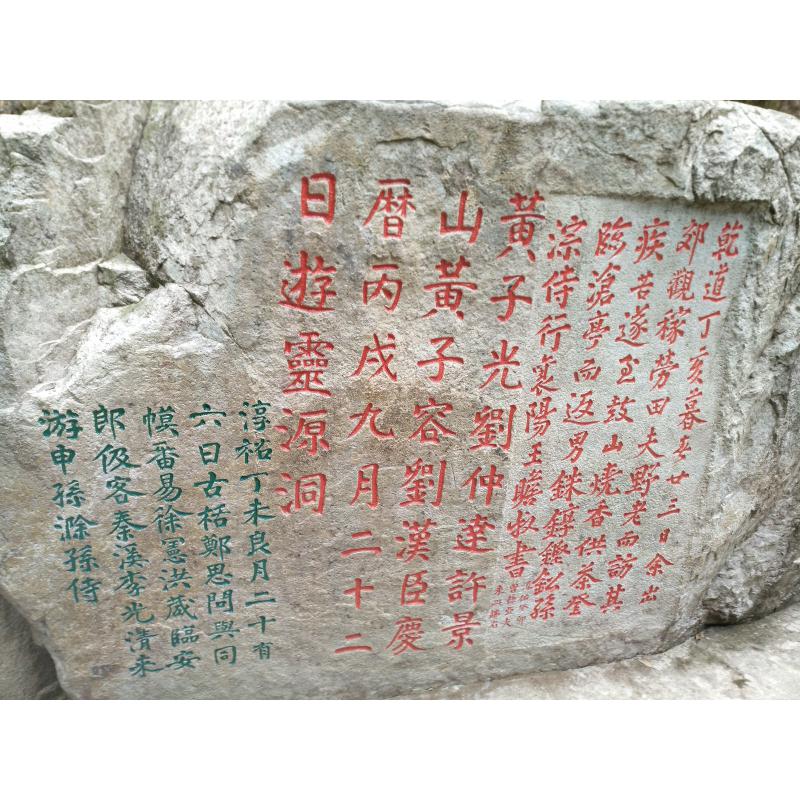 乾道丁亥暮春廿三日余出
郊觀稼勞田夫野老而訪其
疾苦遂至鼓山燒香供茶登
臨滄亭而返男銖錞鏗鈆孫
淙侍行襄陽王瞻叔書
黃子光劉仲達許景
山黃子容劉漢臣慶
曆丙戌九月二十二
日遊靈源洞
淳祐丁未良月二十有
六日古栝鄭思問與同
幙番易徐憲洪葴臨安
郎伋客秦溪李光清來
游申孫滁孫侍